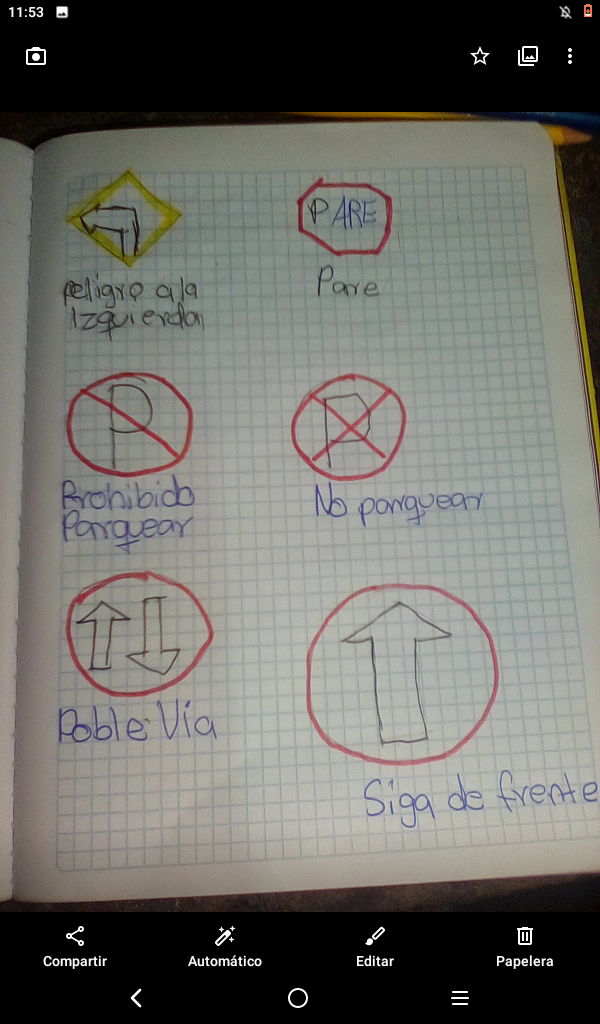 11:53
PARE
peligro a la
Izquierda
Pare
P
P
Prohibido
Parquear
No parquear
Doble Vía
Siga de frente
Compartir
Automático
Editar
Papelera